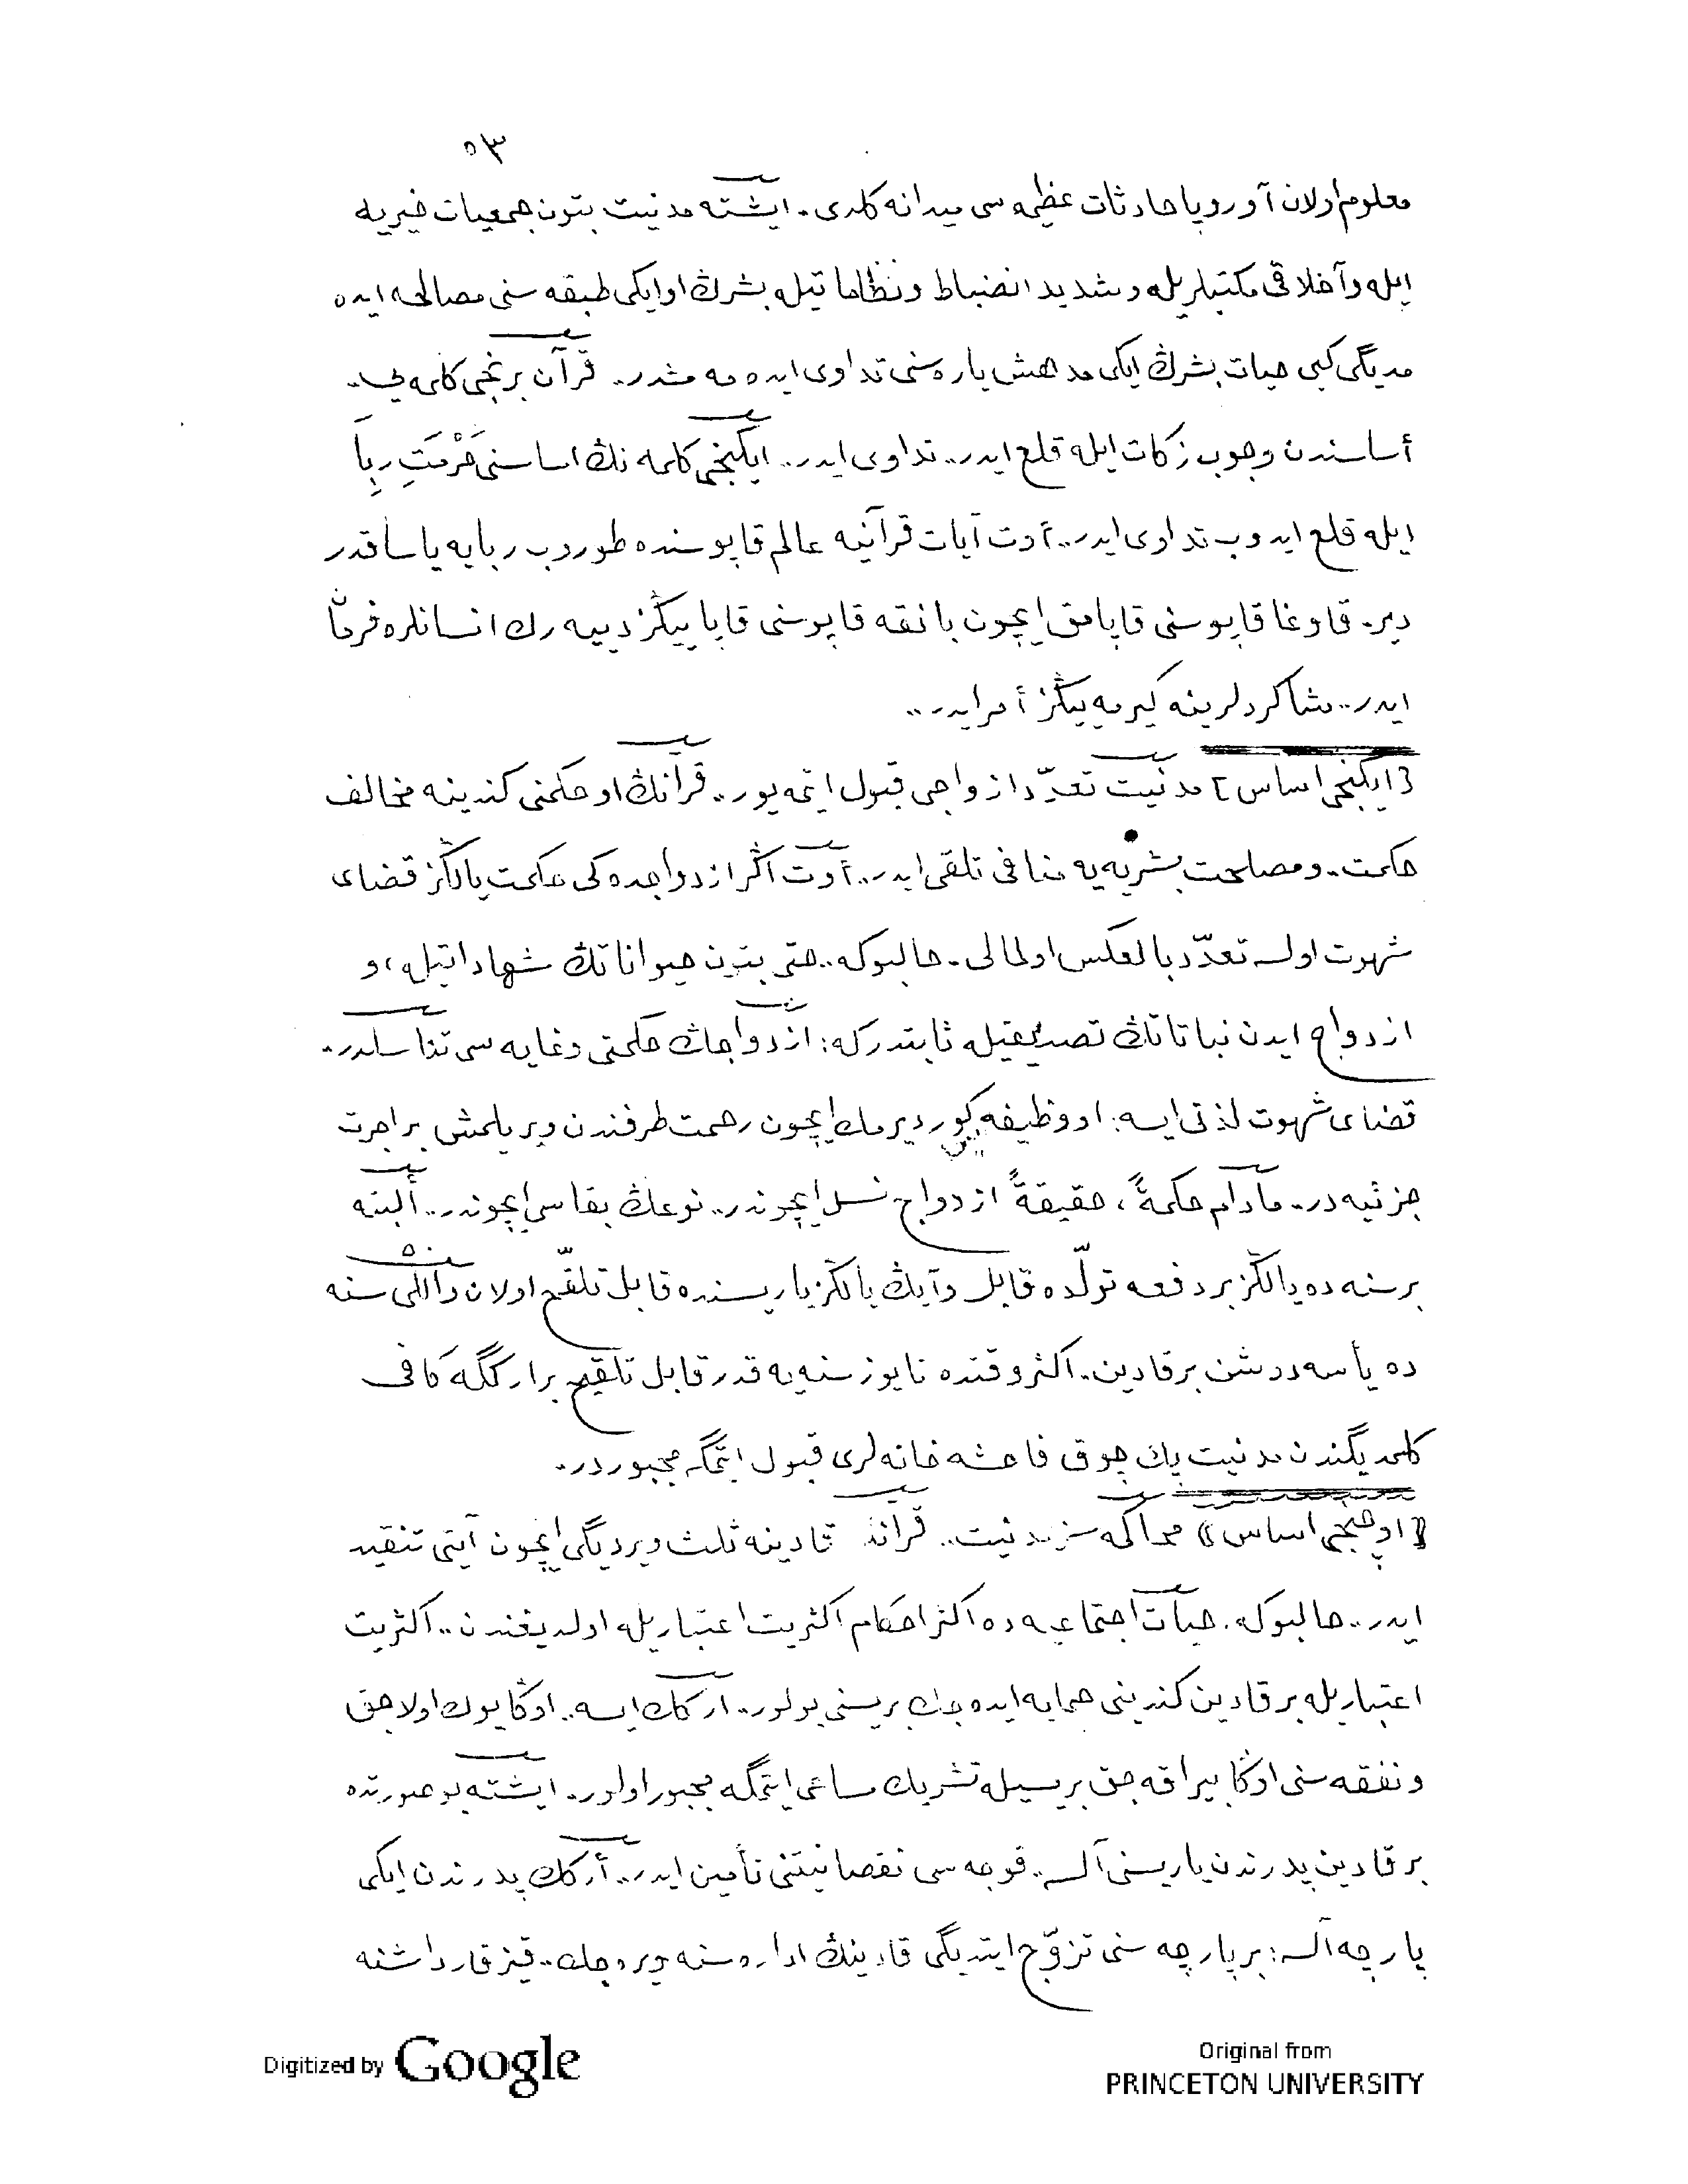 ٥٣
معلوم اولان آوروپا حادثات عظيمه سى ميدانه كلدى. ايشته مدنيت بتون جمعيات خيريه
ايله وآخلاقى مكتبلريله وشديد انضباط ونظاماتيله بشرڭ او ايكى طبقه سنى مصالحه ايده
مديگى كبى حيات بشرڭ ايكى مدهش ياره سنى تداوى ايده مه مشدر.. قرآن برنجى كلمه يى..
أساسندن وجوب زكات ايله قلع ايدر.. تداوى ايدر.. ايكنجى كلمه نڭ اساسنى حُرْمَتِ رِبَا
ايله قلع ايدوب تداوى ايدر.. أوت آيات قرآنيه عالم قاپوسنده طوروب ربايه ياساقدر
دير. قاوغا قاپوسنى قاپامق ايچون بانقه قاپوسنى قاپاييڭز دييه رك انسانلره فرمان
ايدر.. شاكردلرينه گيرمه ييڭز أمر ايدر..
[ايكنجى اساس] مدنيت تعدّد ازواجى قبول ايتمه يور.. قرآنڭ او حكمنى كندينه مخالف
حكمت. ومصلحت بشريه يه منافى تلقى ايدر.. أوت اگر ازدواجده كى حكمت يالڭز قضاى
شهوت اولسه تعدّد بالعكس اولمالى. حالبوكه.. حتى بتون حيواناتڭ شهاداتيله، و
ازدواج ايدن نباتاتڭ تصديقيله ثابتدركه: ازدواجڭ حكمتى وغايه سى تناسلدر.
قضاى شهوت لذتى ايسه: او وظيفه يى گورديرمك ايچون رحمت طرفندن ويريلمش بر اجرت
جزئيه در. مادام حكمةً، حقيقةً ازدواج نسل ايچوندر.. نوعڭ بقاسى ايچوندر.. ألبته
بر سنه ده يالڭز بر دفعه تولّده قابل وآيڭ يالڭز ياريسنده قابل تلقّح اولان واللى سنه
ده يأسه دوشن بر قادين. اكثر وقتده تا يوز سنه يه قدر قابل تلقيح بر اركگه كافى
كلمديگندن مدنيت پك چوق فاحشه خانه لرى قبول ايتمگه مجبوردر.
[اوچنجى اساس] محاكمه سز مدنيت.. قرآن قادينه ثلث ويرديگى ايچون آيتى تنقيد
ايدر.. حالبوكه. حيات اجتماعيه ده اكثر احكام اكثريت اعتباريله اولديغندن.. اكثريت
اعتباريله بر قادين كندينى حمايه ايده جك بريسنى بولور. أركك ايسه.. اوڭا يوك اولاجق
ونفقه سنى اوڭا بيراقه جق بريسيله تشريك مساعى ايتمگه مجبور اولور. ايشته بو صورتده
بر قادين پدرندن ياريسنى آلسه. قوجه سى نقصانيتنى تأمين ايدر.. أركك پدرندن ايكى
پارچه آلسه: بر پارچه سنى تزوّج ايتديگى قادينڭ اداره سنه ويره جك. قيز قارداشنه
Digitized by Google
Original from
PRINCETON UNIVERSITY